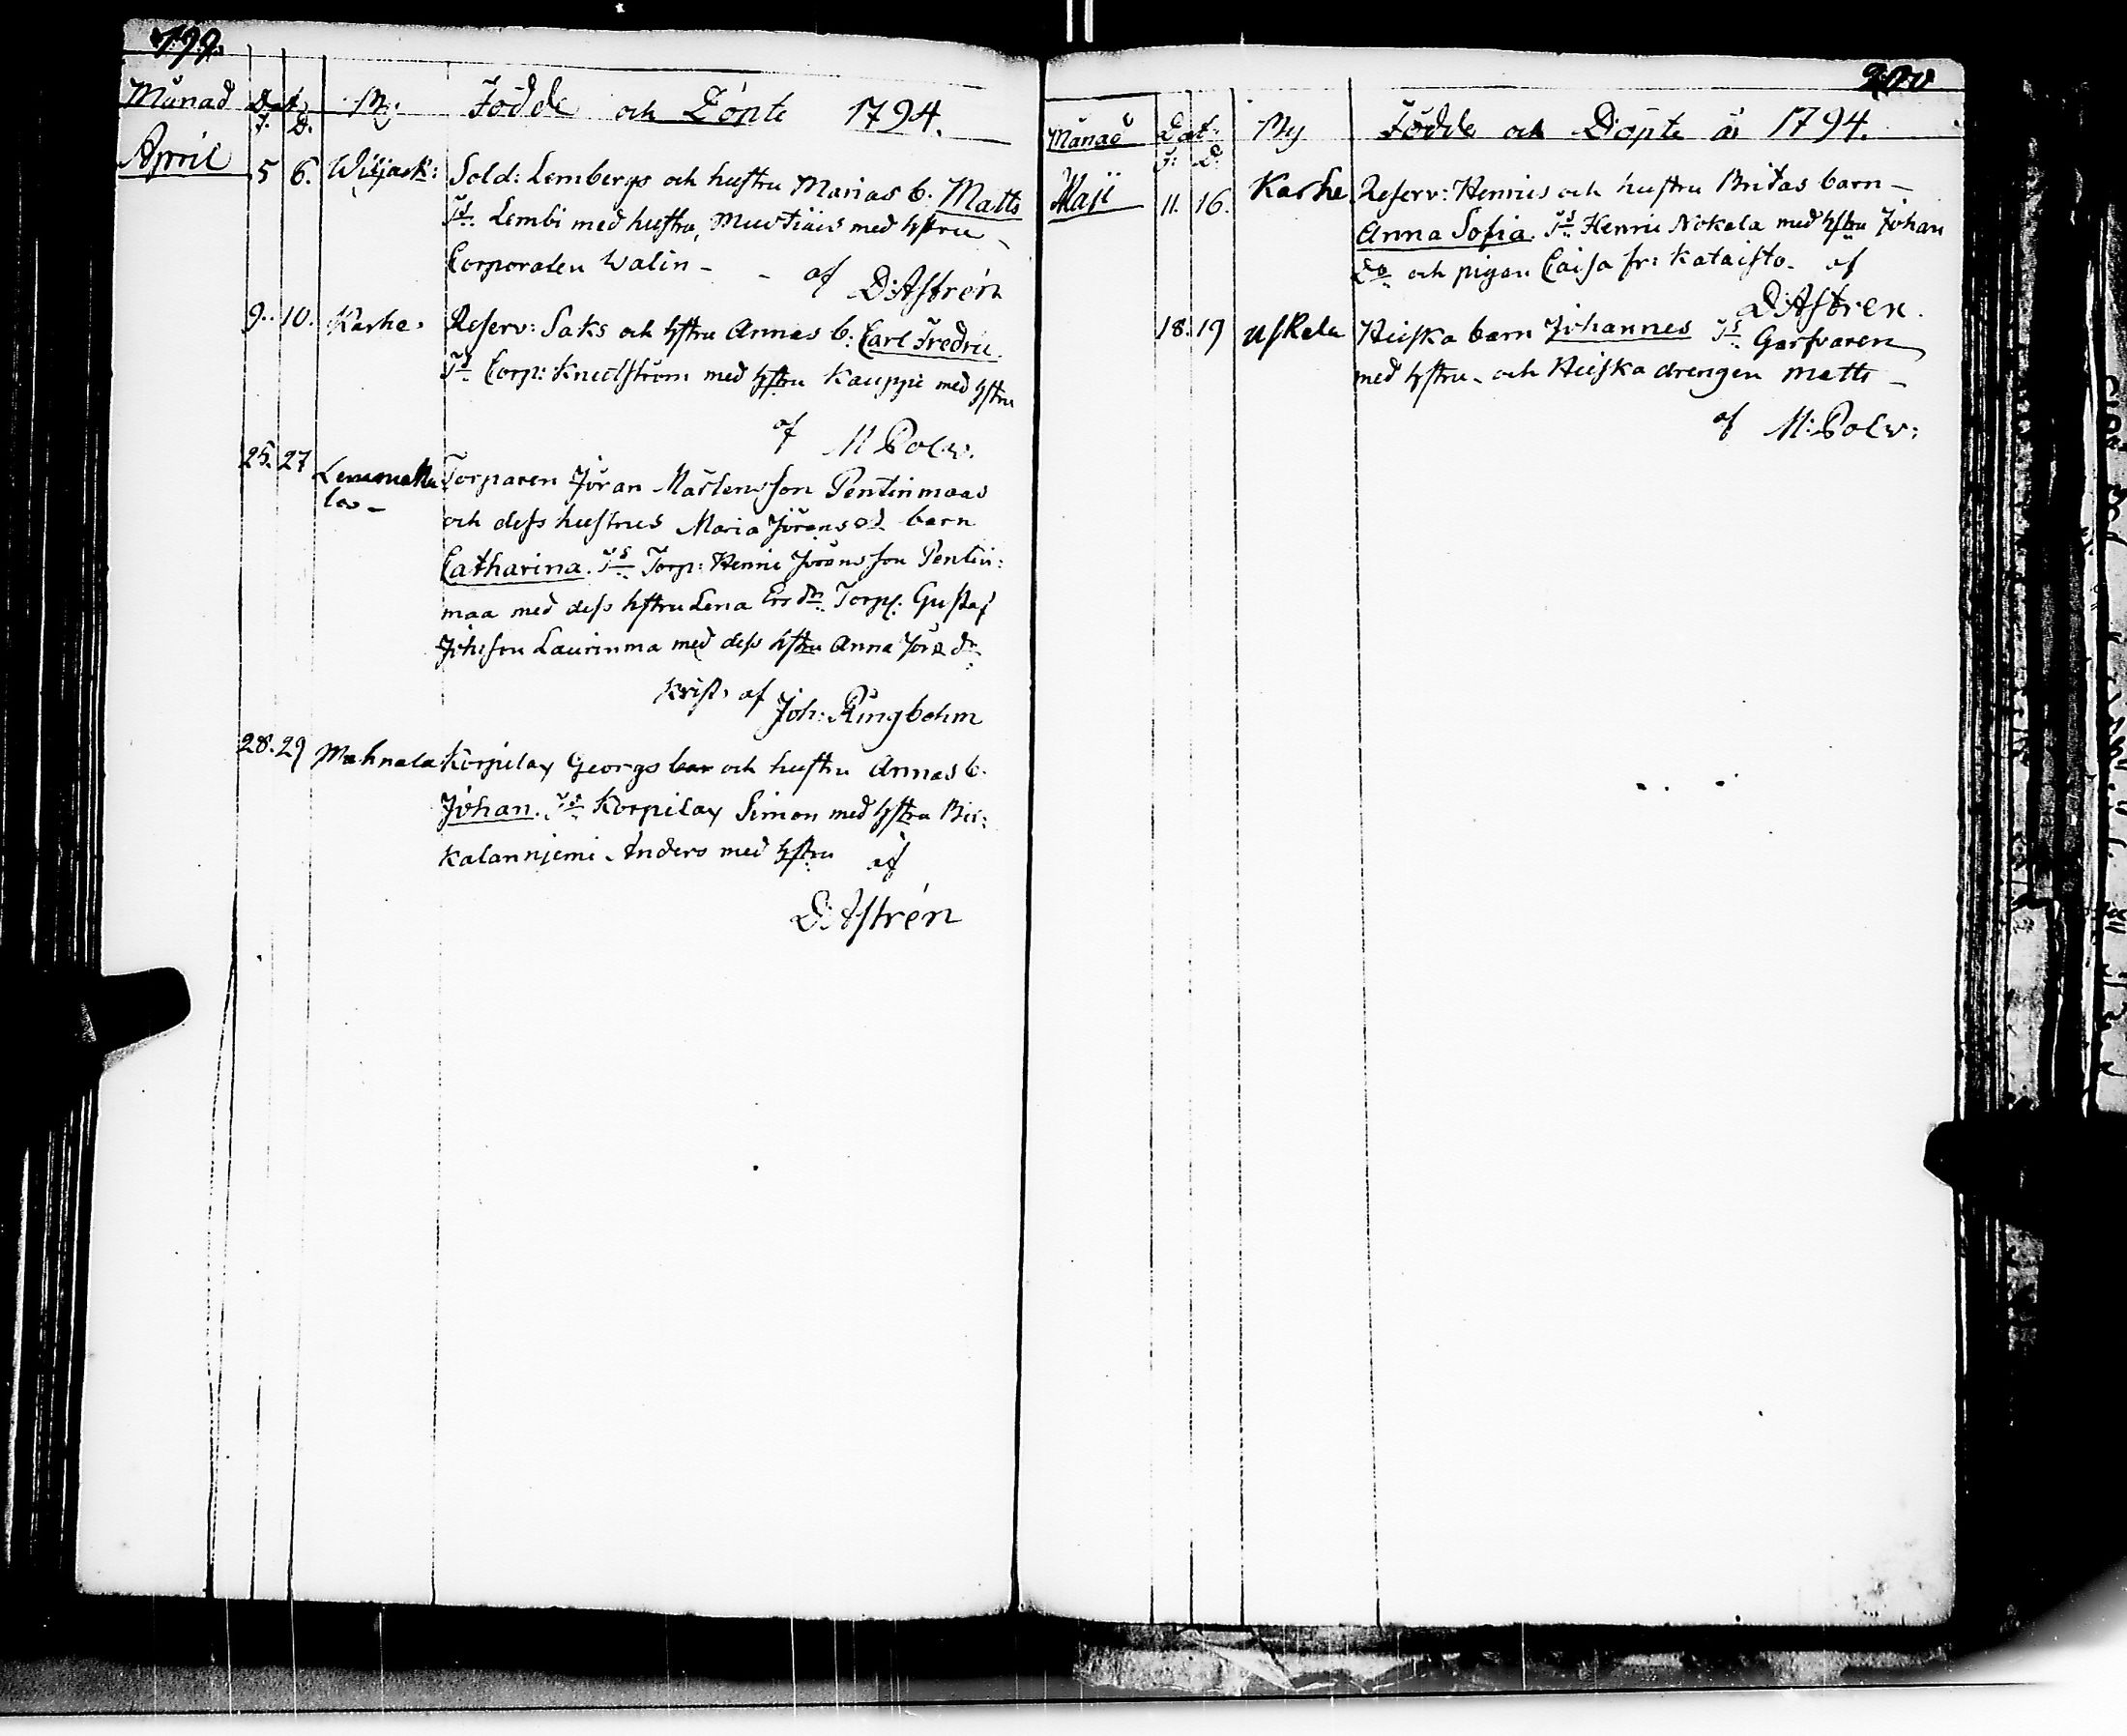 199.
Månad Dat. By Födde och Döpte 1794.
F. D.
April 5 6. Wiljack: Sold: Lembergs och hustru Marias b. Matts
Ts. Lembi med hustru, Mustiais med hstru
Corporalen Walin - - af D: Astrén
9. 10. Karhe. Reserv: Saks och hstru Annas b: Carl Fredric.
Ts. Corp: Knutström med hstru Kauppi med hstru
af M Polv.
25. 27 Torparen Jöran Mårtensson Pentinmaas
och dess hustrus Maria Jöransd barn
Catharina. Ts. Torp: Henric Jöransson Pentin:
maa med dess hstru Lena Ersdr. Torp. Gustaf
Johsson Laurinma med dess hstru Anna Jörsdr.
Krist. af Joh: Ringbohm
28. 29 Mahnala Korpilax Georgs bar och hustru Annas b.
Johan. Ts. Korpilax Simon med hstru Bis:
kalanniemi Anders med hstru af
D: Astrén
200
Månad Dat: By Födde och Döpte år 1794.
F: D:
Maji 11. 16. Karhe Reserv: Henrics och hustru Britas barn -
Anna Sofia. Ts. Henric Nokala med hstru Johan
Do. och pigan Caisa fr: Kataisto. af
D: Astren.
18. 19 Uskela Heiska barn Johannes Ts. Garfvaren
med hstru. och Heiska drengen Matts -
af M: Polv: